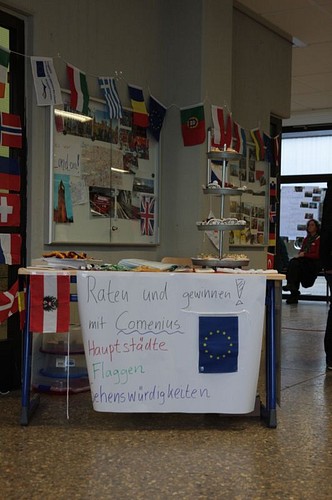 London!
Raten und gewinnen!
mit Comenius
Hauptstädte
Flaggen
ehenswürdigkeiten